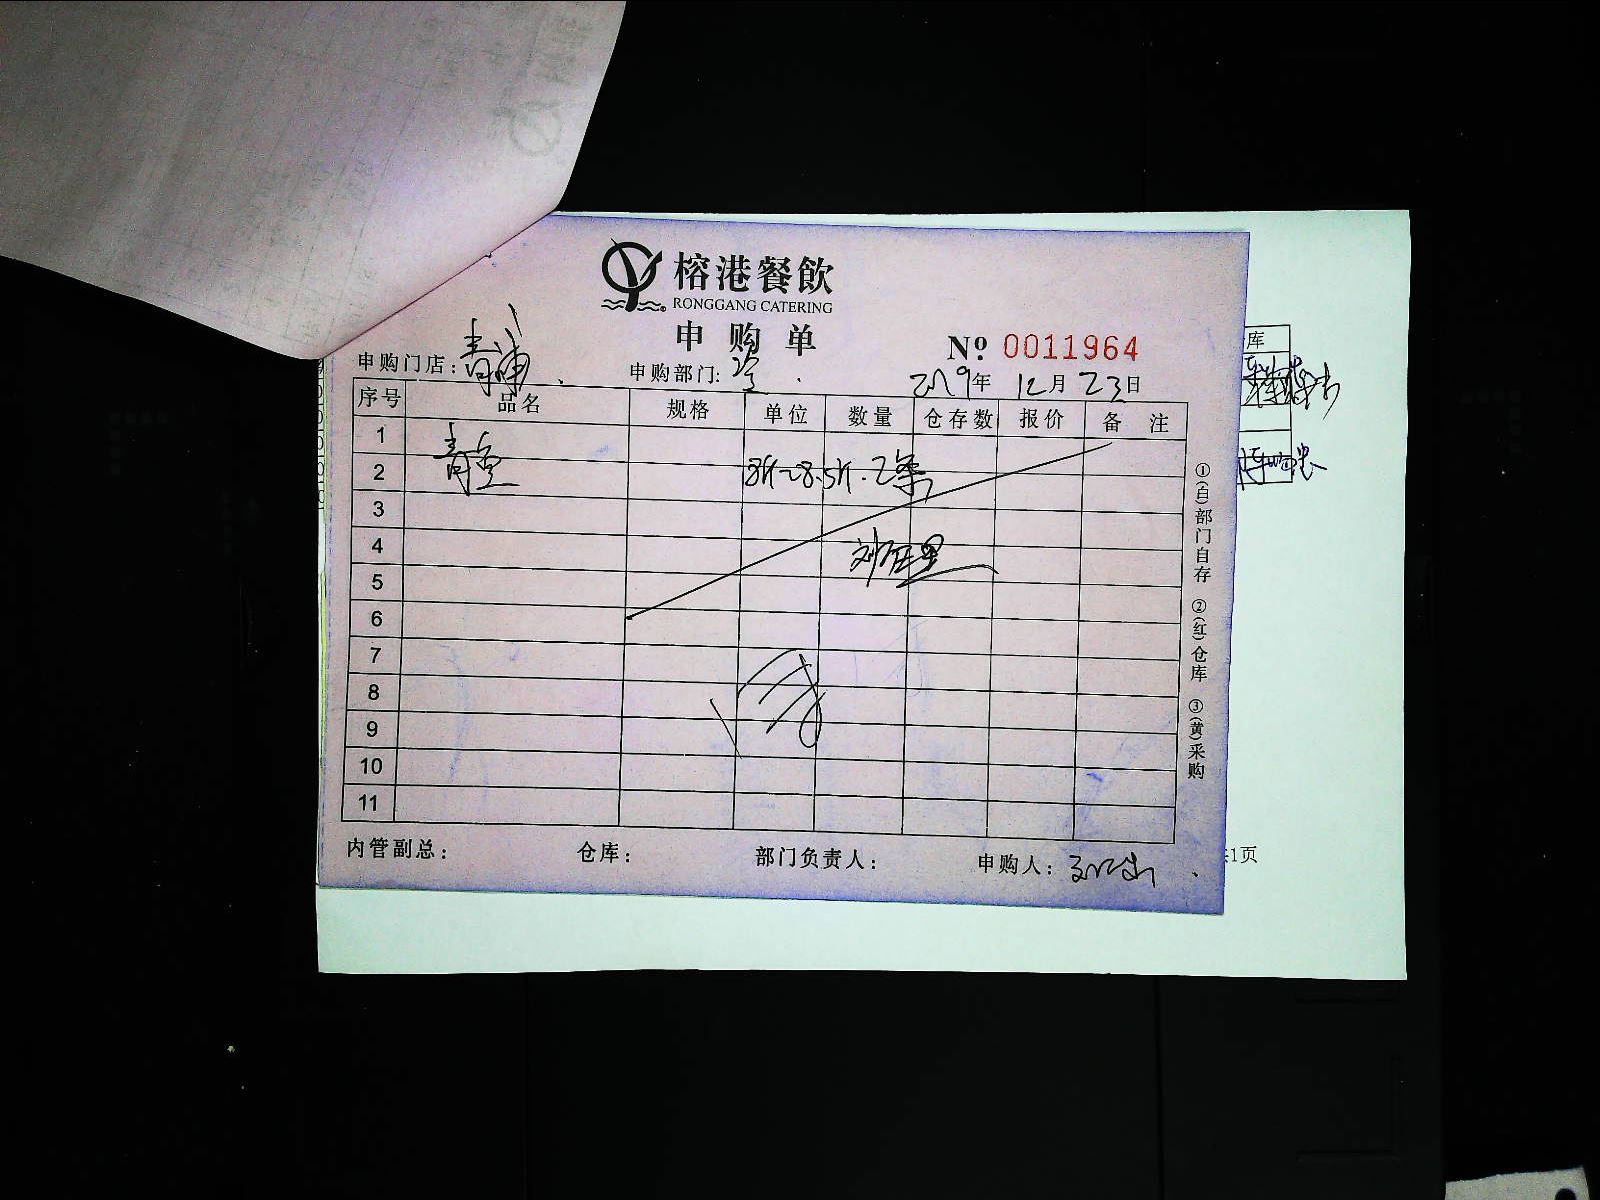 榕港餐飲
RONGGANG CATERING
申购单
№ 0011964
申购门店: 青浦
申购部门:
2019年 12月 23日
序号 品名 规格 单位 数量 仓存数 报价 备注
1
2 8斤-8.5斤.2条
3
4
5
6
7
8
9
10
11
①(白)部门自存 ②(红)仓库 ③(黄)采购
内管副总: 仓库: 部门负责人: 申购人:
库
1页